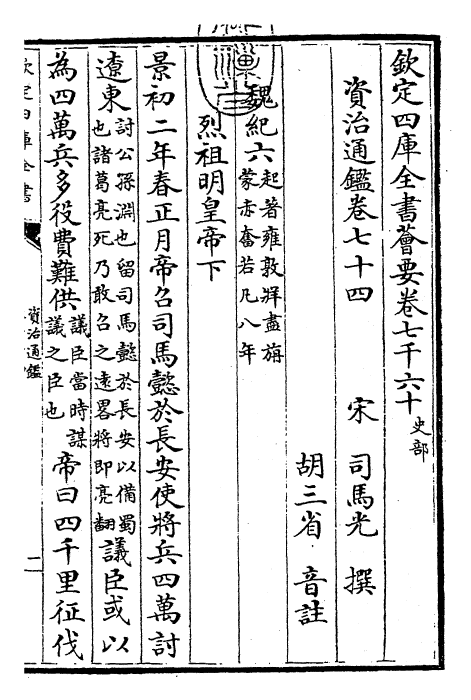 欽定四庫全書薈要卷七千六十 史部
資治通鑑卷七十四
宋 司馬光 撰
胡三省 音註
魏紀六 起著雍敦牂盡旃
蒙赤奮若凡八年
烈祖明皇帝下
景初二年春正月帝召司馬懿於長安使將兵四萬討
遼東 討公孫淵也留司馬懿於長安以備蜀
也諸葛亮死乃敢召之遠畧將即亮翻 議臣或以
為四萬兵多役費難供 議臣當時謀
議之臣也 帝曰四千里征伐
欽定四庫全書
資治通鑑